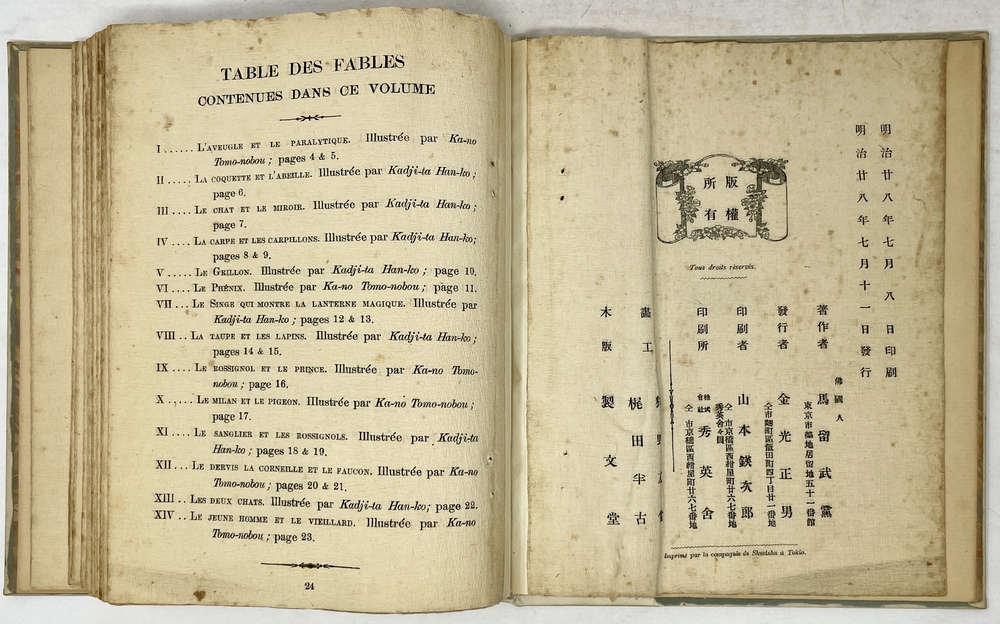 TABLE DES FABLES
CONTENUES DANS CE VOLUME
I...... L'AVEUGLE ET LE PARALYTIQUE. Illustrée par Ka-no
Tomo-nobou; pages 4 & 5.
II ..... LA COQUETTE ET L'ABEILLE. Illustrée par Kadji-ta Han-ko;
page 6.
III .... LE CHAT ET LE MIROIR. Illustrée par Kadji-ta Han-ko;
page 7.
IV .... LA CARPE ET LES CARPILLONS. Illustrée par Kadji-ta Han-ko;
pages 8 & 9.
V ..... LE GRILLON. Illustrée par Kadji-ta Han-ko; page 10.
VI .... LE PHÉNIX. Illustrée par Ka-no Tomo-nobou; page 11.
VII ... LE SINGE QUI MONTRE LA LANTERNE MAGIQUE. Illustrée par
Kadji-ta Han-ko; pages 12 & 13.
VIII .. LA TAUPE ET LES LAPINS. Illustrée par Kadji-ta Han-ko;
pages 14 & 15.
IX .... LE ROSSIGNOL ET LE PRINCE. Illustrée par Ka-no Tomo-
nobou; page 16.
X ..... LE MILAN ET LE PIGEON. Illustrée par Ka-no Tomo-nobou;
page 17.
XI .... LE SANGLIER ET LES ROSSIGNOLS. Illustrée par Kadji-ta
Han-ko; pages 18 & 19.
XII ... LE DERVIS LA CORNEILLE ET LE FAUCON. Illustrée par Ka-no
Tomo-nobou; pages 20 & 21.
XIII .. LES DEUX CHATS. Illustrée par Kadji-ta Han-ko; page 22.
XIV .. LE JEUNE HOMME ET LE VIEILLARD. Illustrée par Ka-no
Tomo-nobou; page 23.
24
明治廿八年七月八日印刷
明治廿八年七月十一日發行
版權
所有
Tous droits réservés.
佛國人
著作者 馬留武黨
東京市築地居留地五十一番館
發行者 金光正男
仝市麹町區飯田町四丁目廿一番地
印刷者 山本鍈次郎
仝市京橋區西紺屋町廿六七番地
秀英舍々員
印刷所 株式會社 秀英舍
仝市京橋區西紺屋町廿六七番地
畫工
梶田半古
木版 製文堂
Imprimé par la compagnie de Shueisha à Tokio.